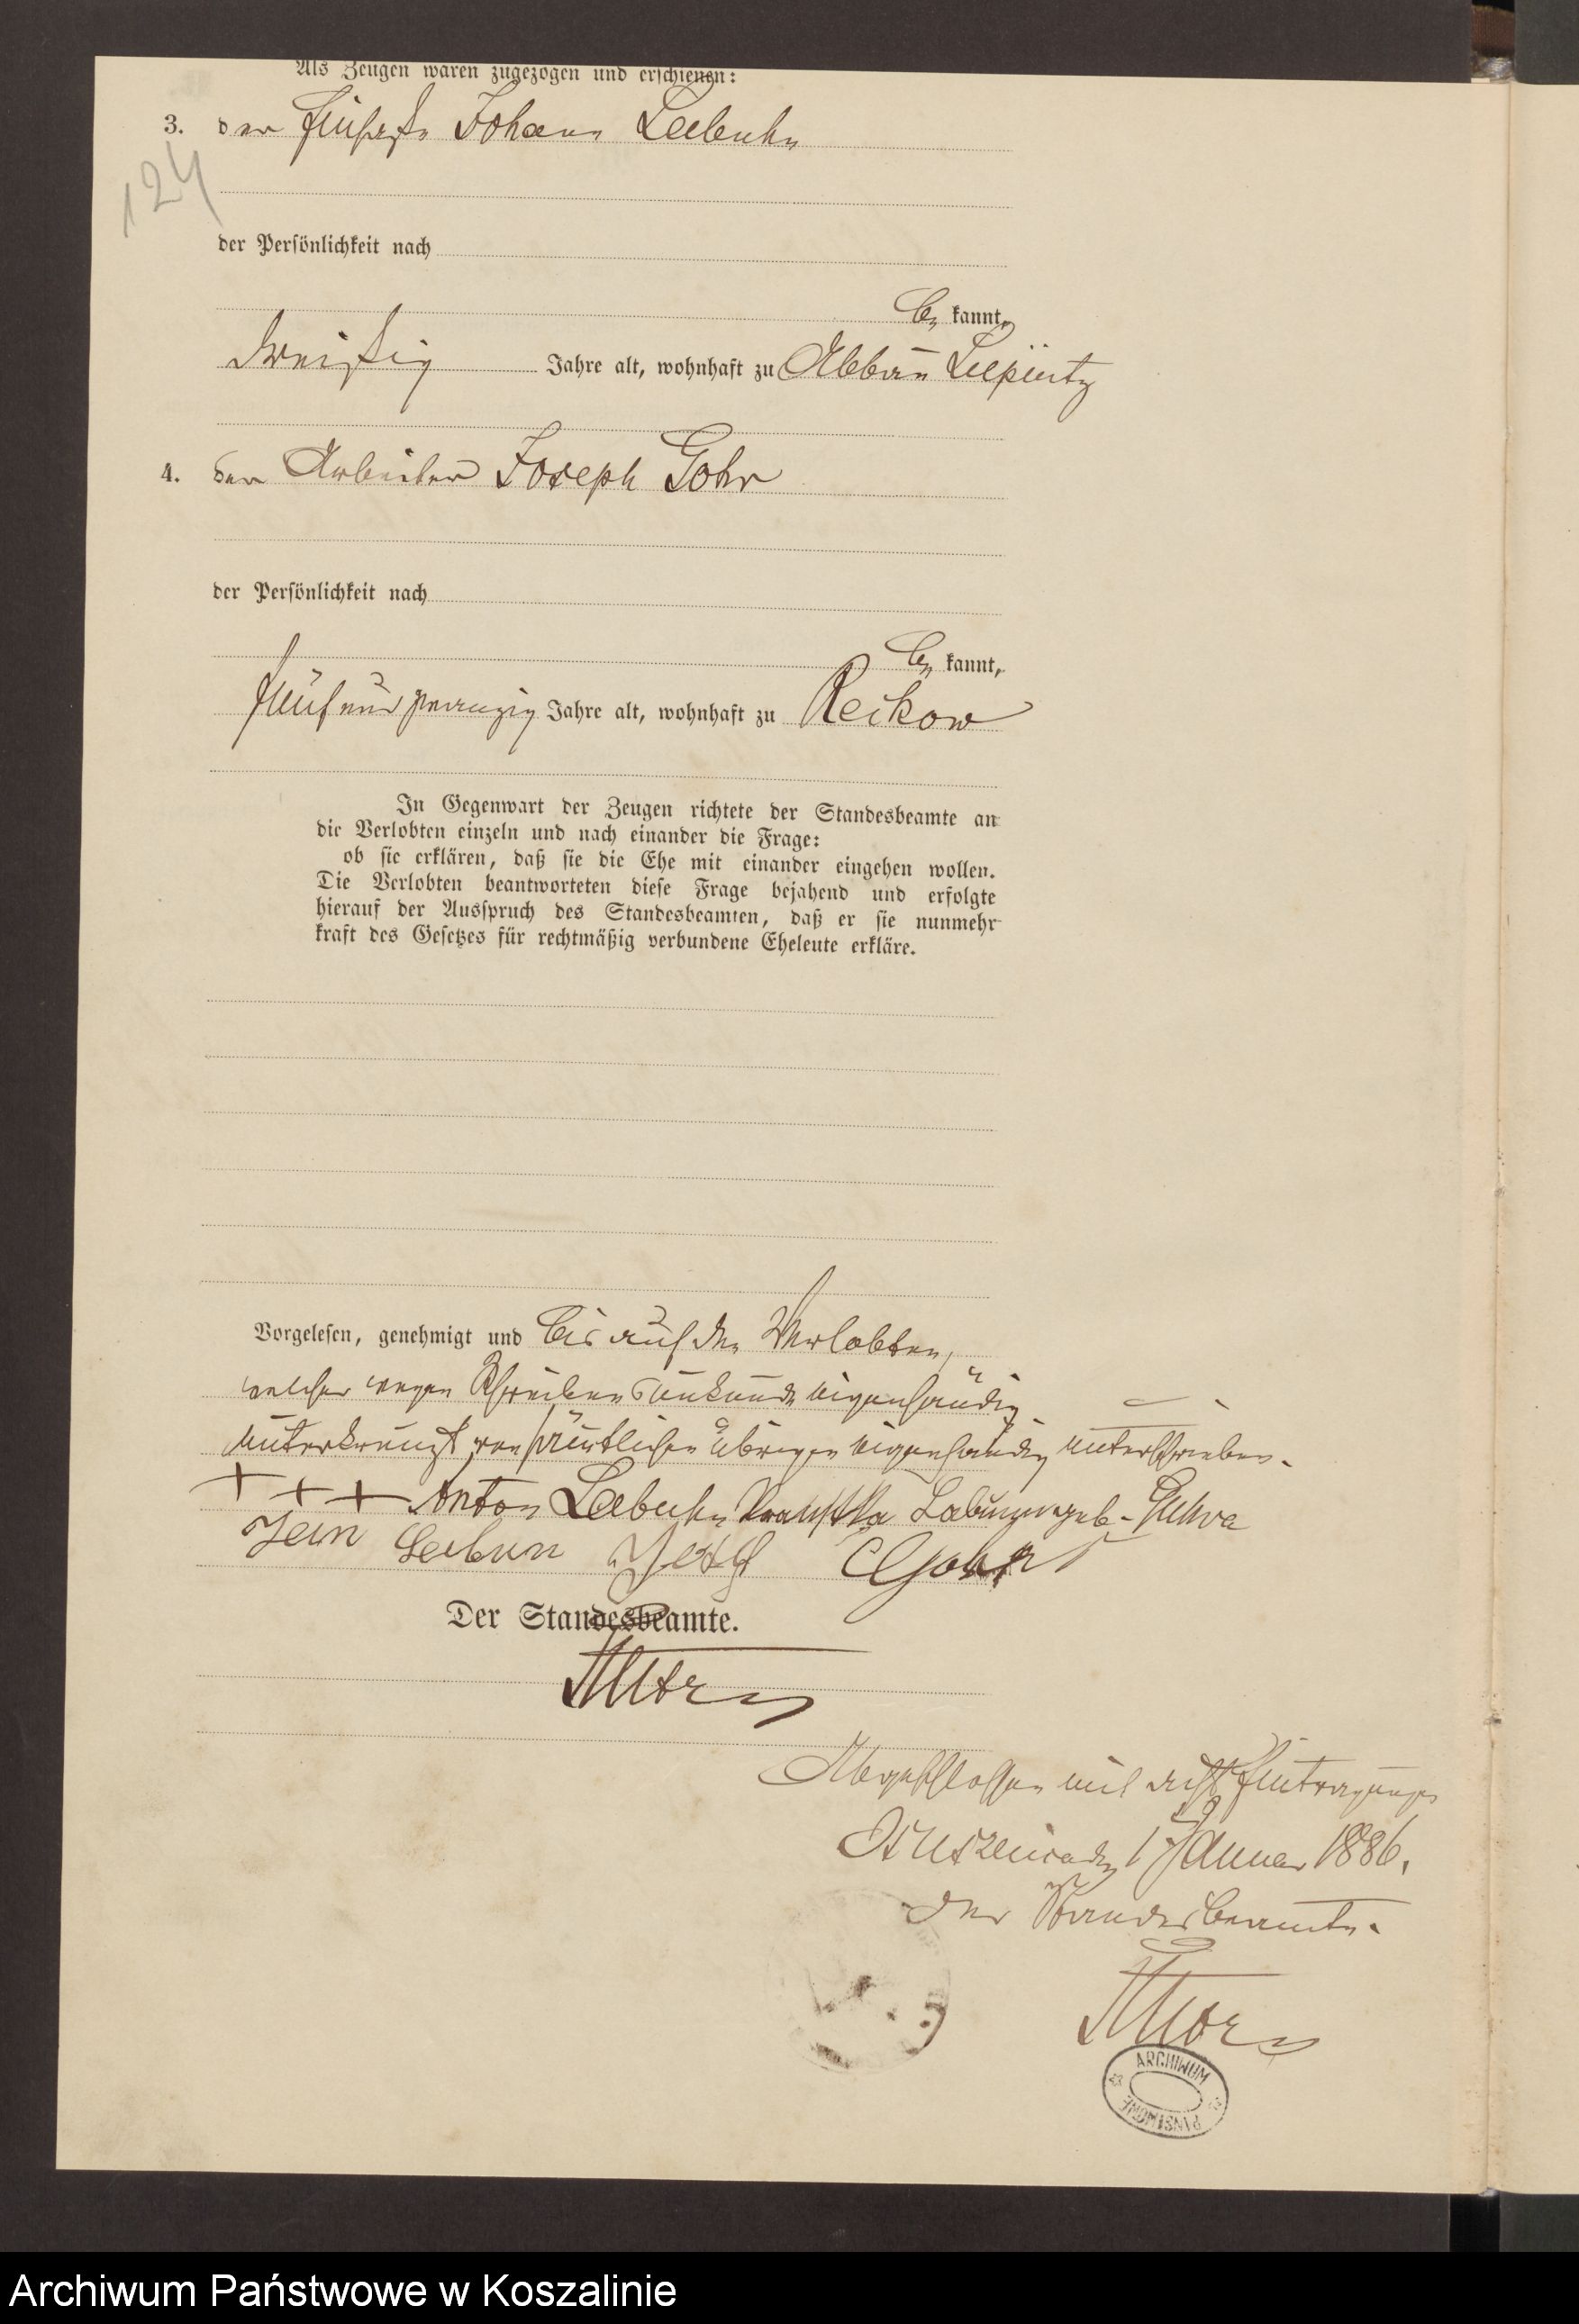 Als Zeugen waren zugezogen und erschienen:
3. der Johann Labuhn
124
der Persönlichkeit nach
be kannt,
dreißig Jahre alt, wohnhaft zu Abbau
4. der Arbeiter Joseph Gohr
der Persönlichkeit nach
be kannt,
fünfundzwanzig Jahre alt, wohnhaft zu Reckow
In Gegenwart der Zeugen richtete der Standesbeamte an
die Verlobten einzeln und nach einander die Frage:
ob sie erklären, daß sie die Ehe mit einander eingehen wollen.
Die Verlobten beantworteten diese Frage bejahend und erfolgte
hierauf der Ausspruch des Standesbeamten, daß er sie nunmehr
kraft des Gesetzes für rechtmäßig verbundene Eheleute erkläre.
Vorgelesen, genehmigt und bis auf den Verlobten,
welcher wegen Schreibensunkunde eigenhändig
unterkreuzt von sämtlichen übrigen eigenhändig unterschrieben.
+ + + Anton Labuhn geb.
Jan
Der Standesbeamte.
Abgeschlossen mit acht Eintragungen
Januar 1886.
Der Standesbeamte.
ARCHIWUM
PAŃSTWOWE
Archiwum Państwowe w Koszalinie